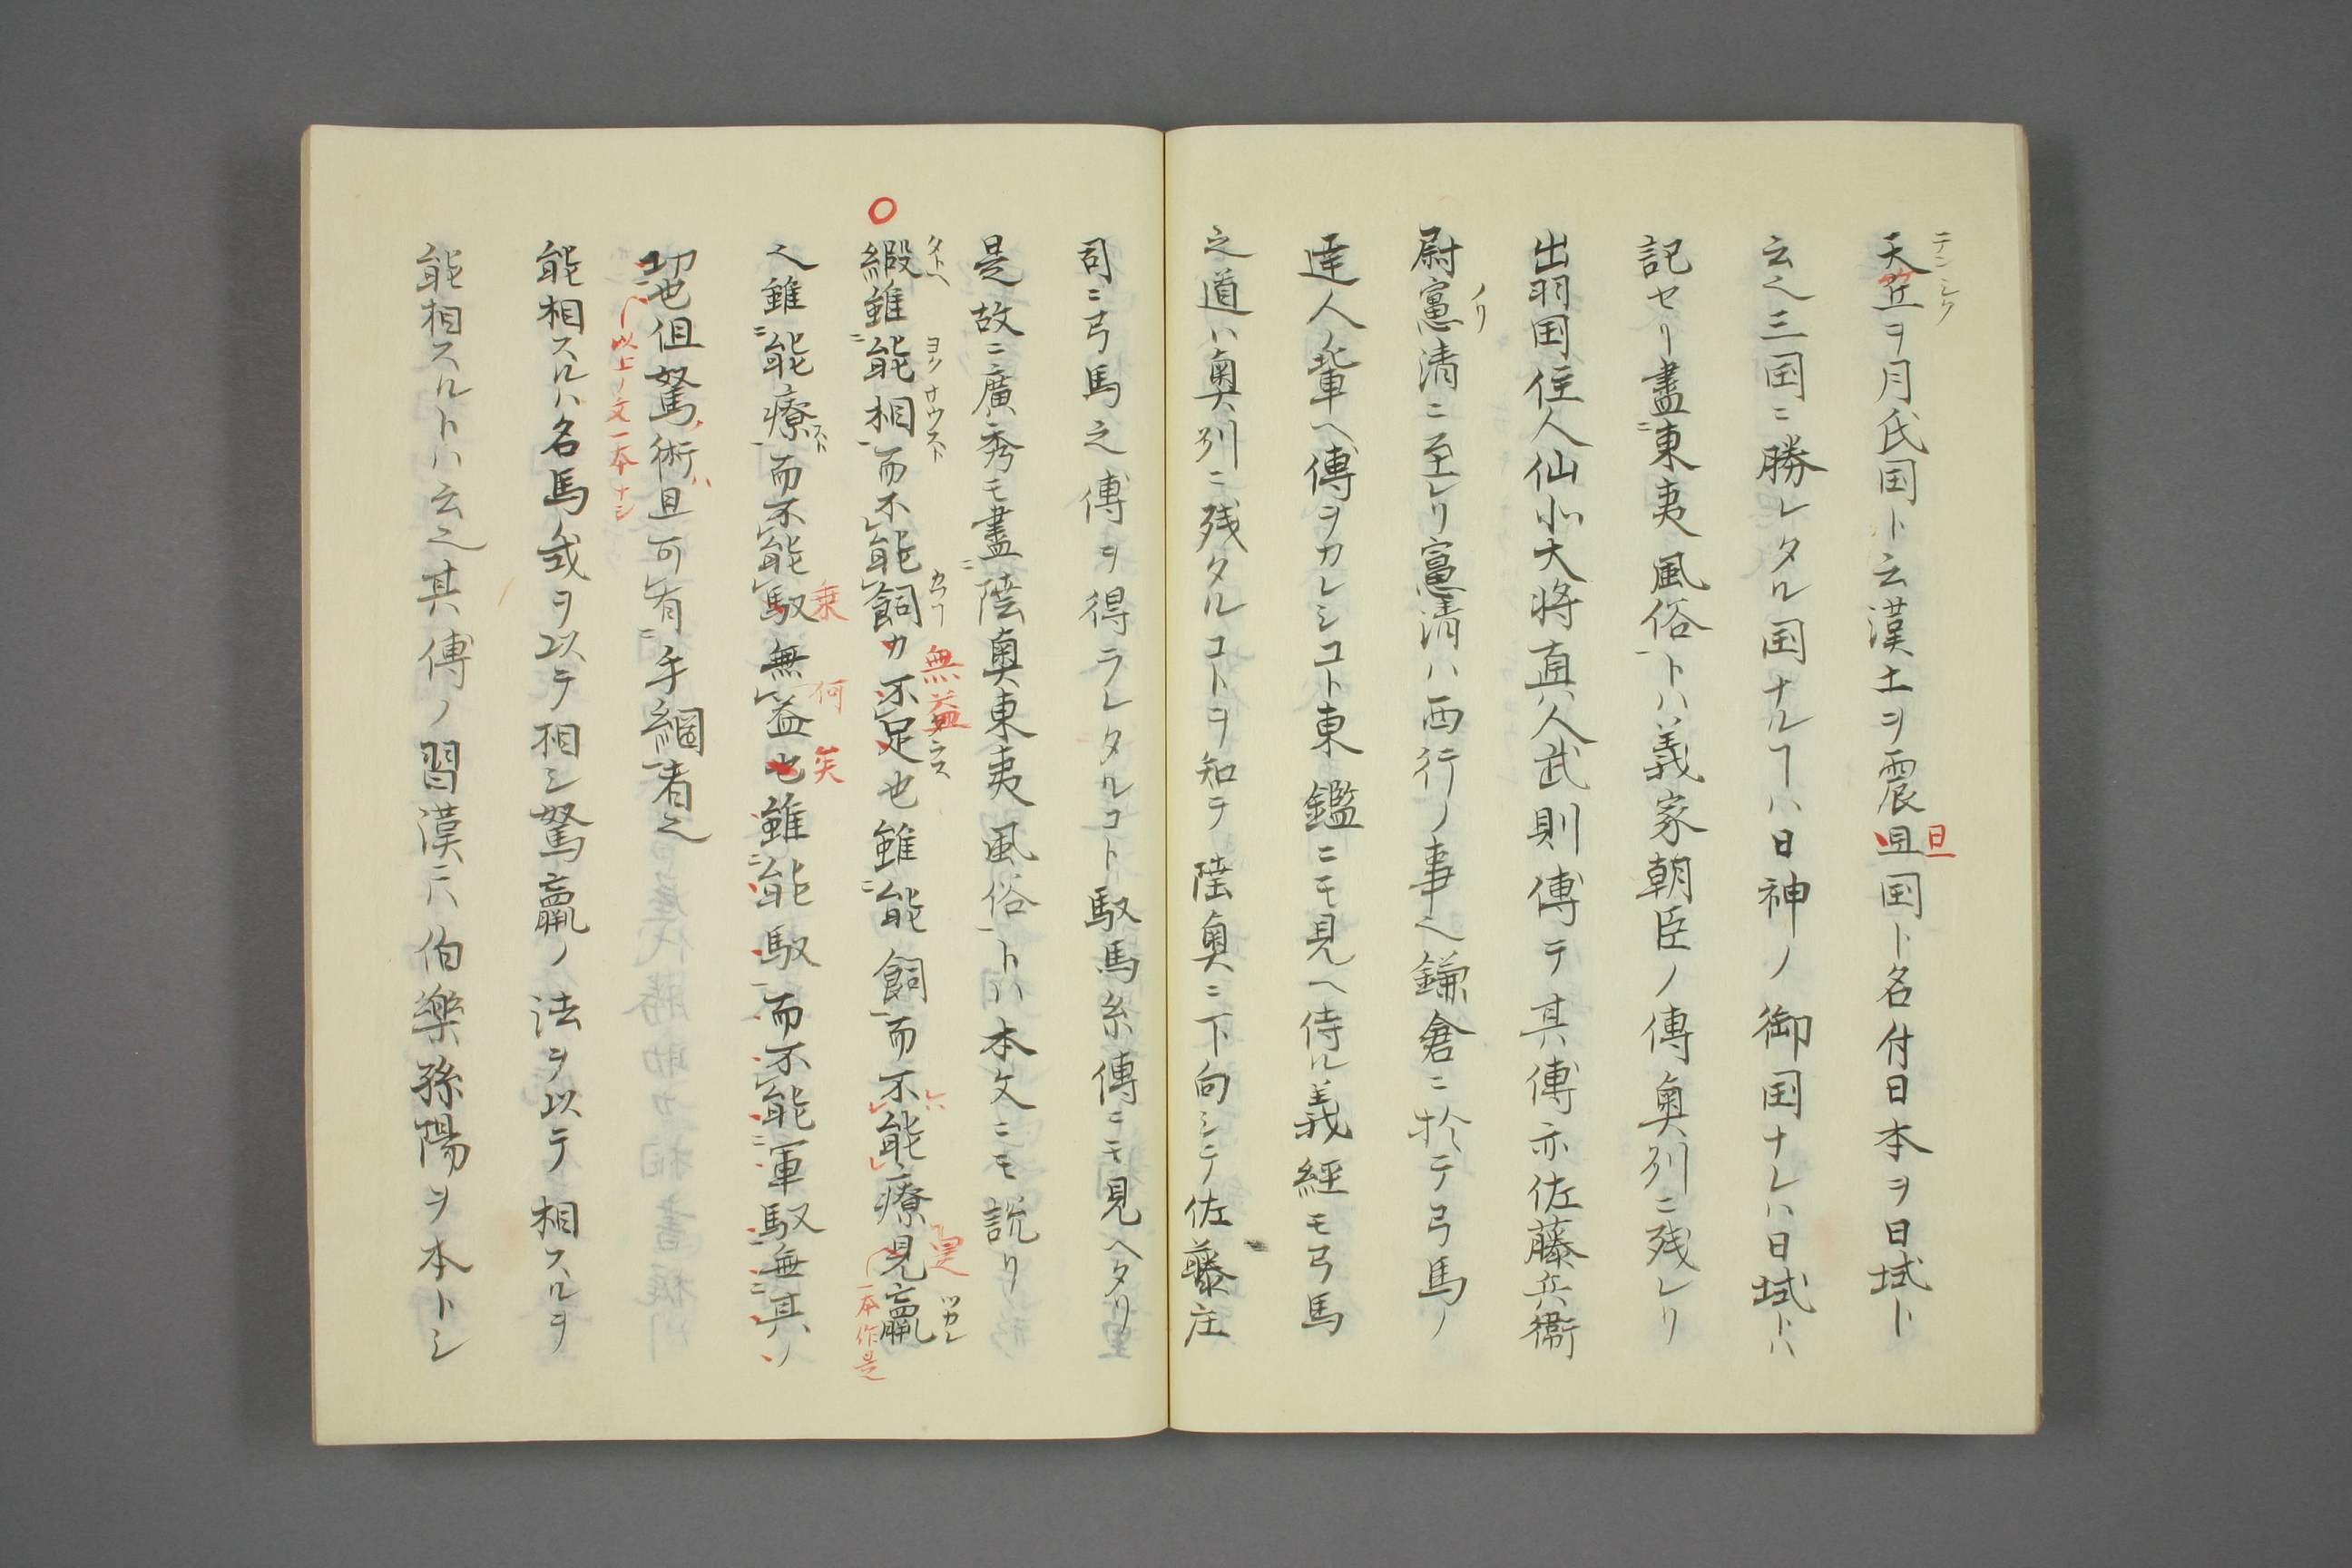 天竺ヲ月氏国ト云漢土ヲ震旦国ト名付日本ヲ日域ト
テンシク
旦
云之三国ニ勝レタル国ナルヿハ日神ノ御国ナレハ日域トハ
記セリ盡東夷風俗トハ義家朝臣ノ傳奥列ニ残レリ
出羽国住人仙北大将直人武則傳テ其傳亦佐藤兵衞
尉憲清ニ至レリ憲清ハ西行ノ事也鎌倉ニ於テ弓馬ノ
ノリ
達人ノ輩ヘ傳ヲカレシコト東鑑ニモ見ヘ侍ル義経モ弓馬
之道ハ奥列ニ残タルコトヲ知テ陸奥ニ下向シテ佐藤庄
司ニ弓馬之傳ヲ得ラレタルコト馭馬糸傳ニモ見ヘタリ
是故ニ廣秀モ盡陸奥東夷風俗トハ本文ニモ説リ
○
縦雖能相而不能飼力不足也雖能飼而不能療見羸
タトヘ ヨク ナウスト カフコ ツカレ
無益
是
一本作是
也雖能療而不能馭無益也雖能馭而不能軍馭無其ノ
乗 何 矣
功也但駑術且可有手綱者也
以上ノ文一本ナシ
能相スルハ名馬ノ或ヲ以テ相シ駑羸ノ法ヲ以テ相スルヲ
能相スルトハ云之其傳ノ習漢ニハ伯樂孫陽ヲ本トシ